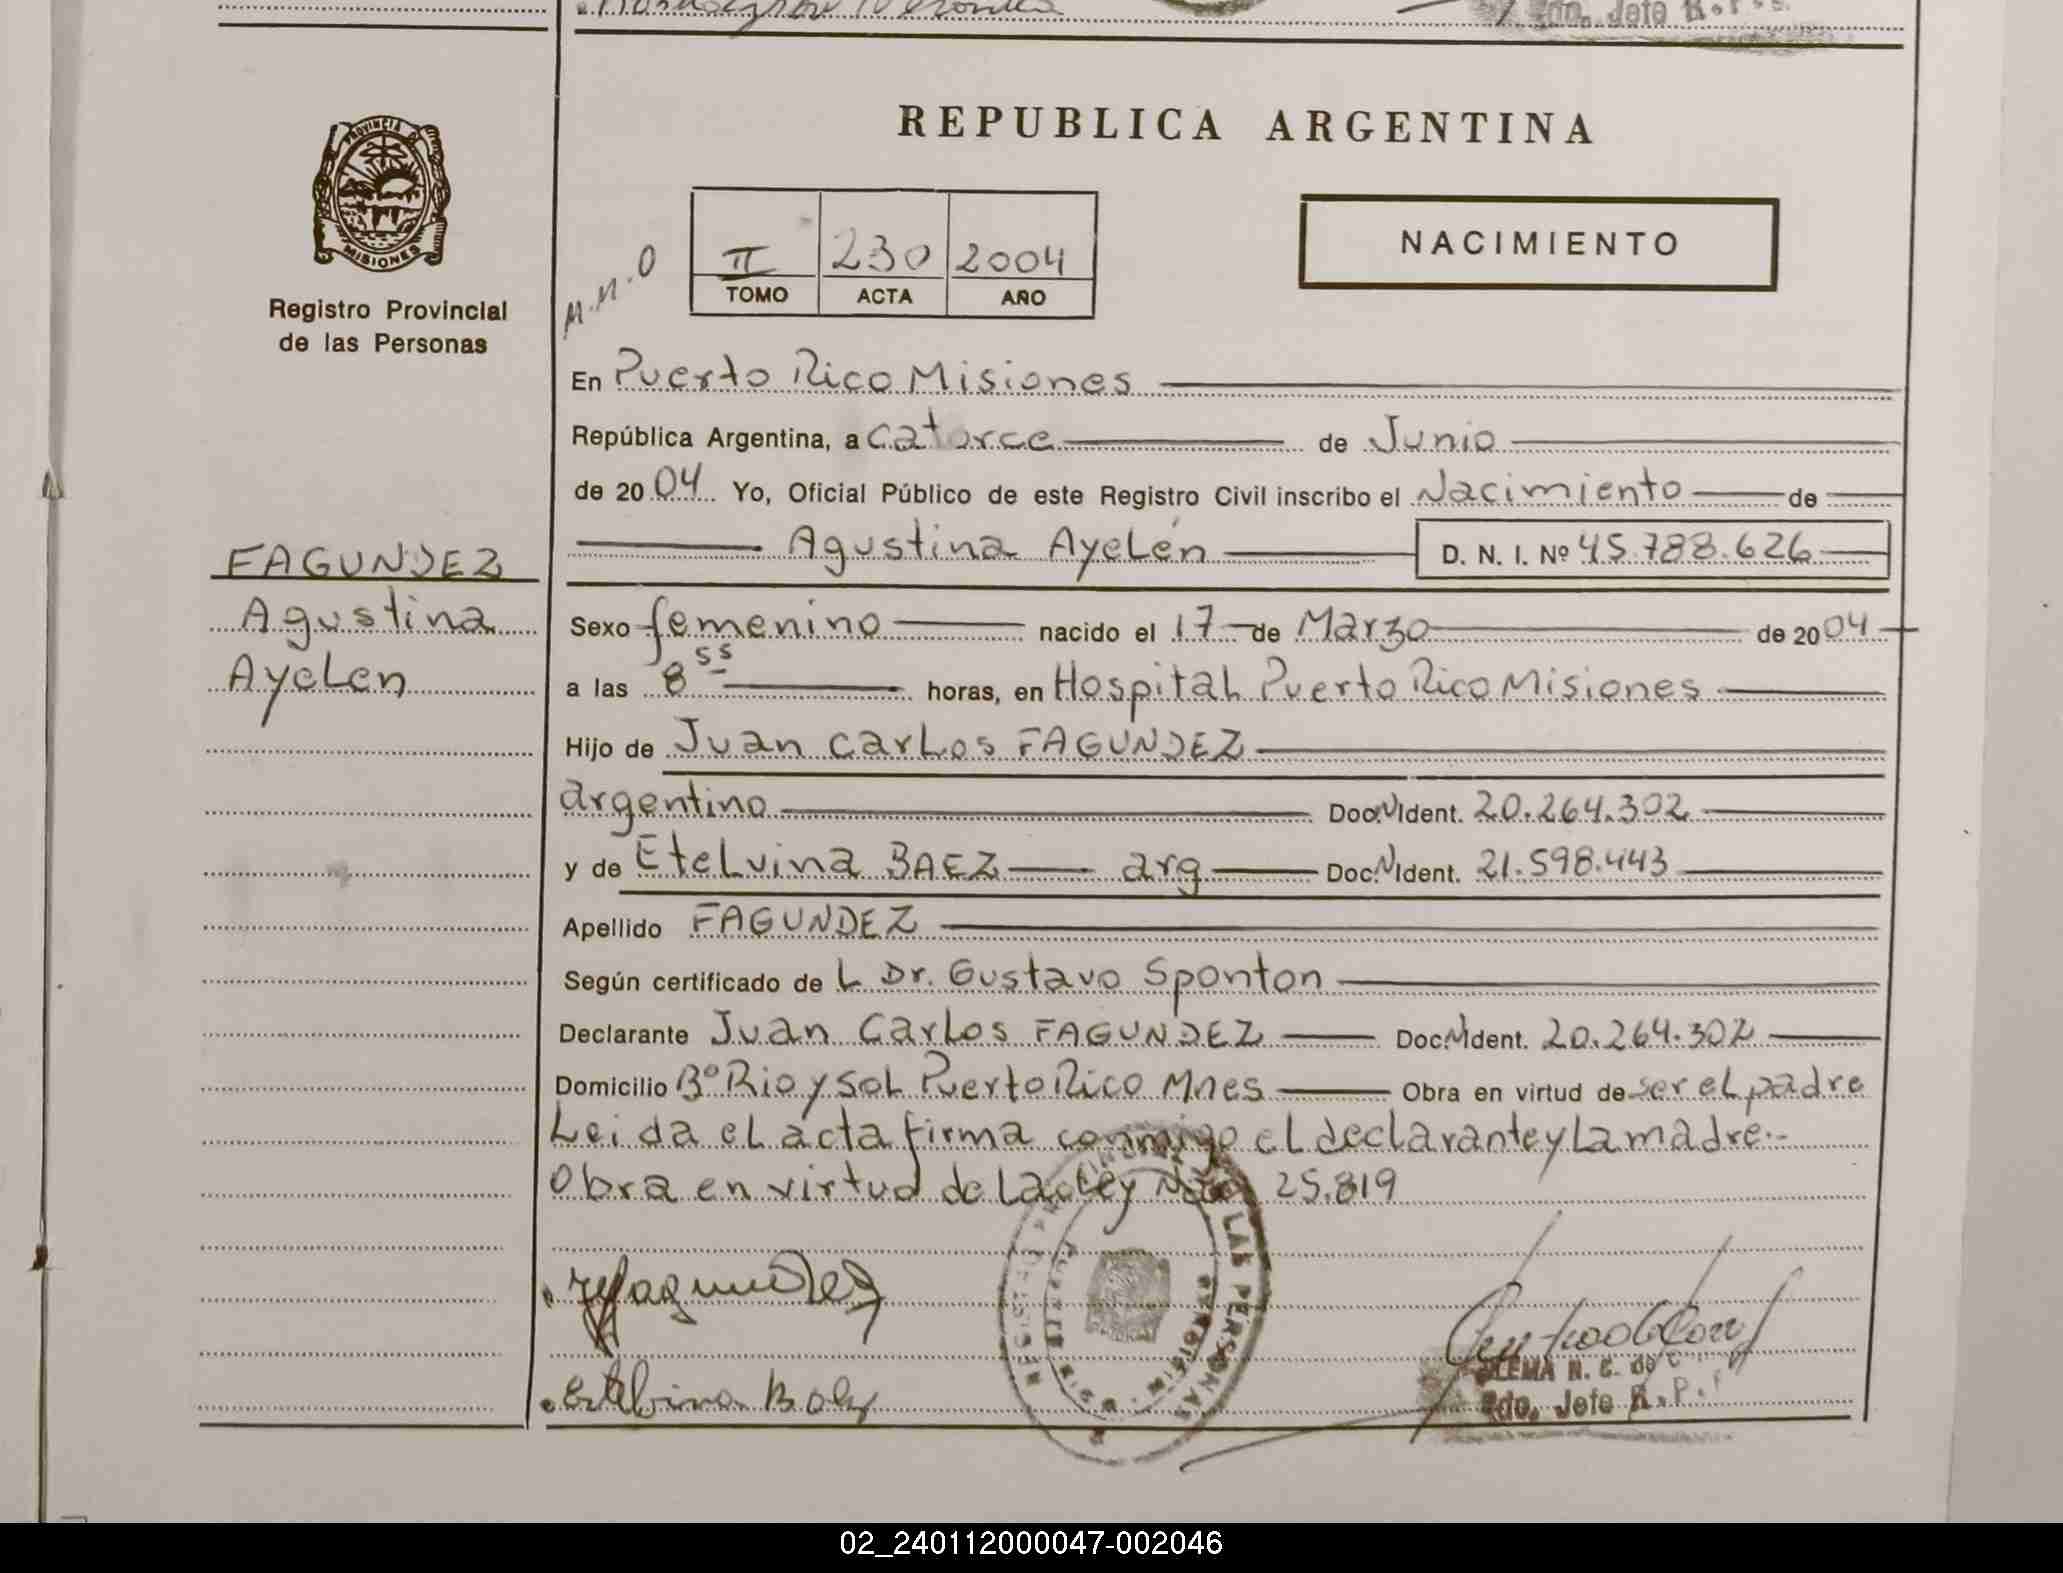 Rdo. Jefe R.P.
PROVINCIA
MISIONES
Registro Provincial
de las Personas
REPUBLICA ARGENTINA
M.M.O
II 230 2004
TOMO ACTA AÑO
NACIMIENTO
En Puerto Rico Misiones
República Argentina, a Catorce de Junio
de 2004 Yo, Oficial Público de este Registro Civil inscribo el Nacimiento de
Agustina Ayelén D. N. I. Nº 45.788.626
FAGUNDEZ
Agustina
Ayelen
Sexo femenino nacido el 17 de Marzo de 2004
a las 8 55 horas, en Hospital Puerto Rico Misiones
Hijo de Juan Carlos FAGUNDEZ
argentino Doc.N Ident. 20.264.302
y de Etelvina BAEZ arg Doc.N Ident. 21.598.443
Apellido FAGUNDEZ
Según certificado de L Dr. Gustavo Sponton
Declarante Juan Carlos FAGUNDEZ Doc.N Ident. 20.264.302
Domicilio Bº Rio y Sol Puerto Rico Mnes Obra en virtud de ser el padre
Leida el acta firma conmigo el declarante y la madre.-
Obra en virtud de la Ley Nº 25.819
LAS PERSONAS
Etelvina Baez
N. C. de
Rdo. Jefe R.P.
02_240112000047-002046